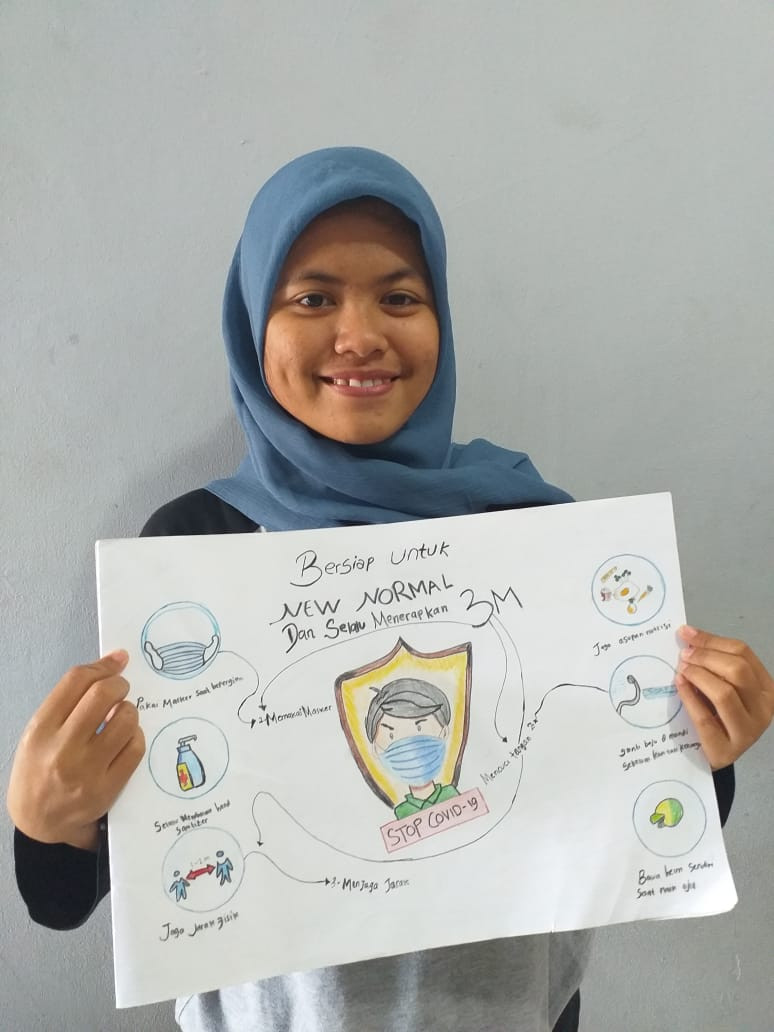 Bersiap untuk
NEW NORMAL
Dan Selalu Menerapkan 3M
Pakai Masker Saat bepergian
1. Memakai Masker
Selalu Membawa hand
Sanitizer
1-2 m
Jaga Jarak Fisik
3. Menjaga Jarak
Mencuci tangan
STOP COVID-19
Jaga asupan nutrisi
ganti baju & mandi
Sebelum kontak keluarga
Bawa helm Sendiri
Saat naik ojol